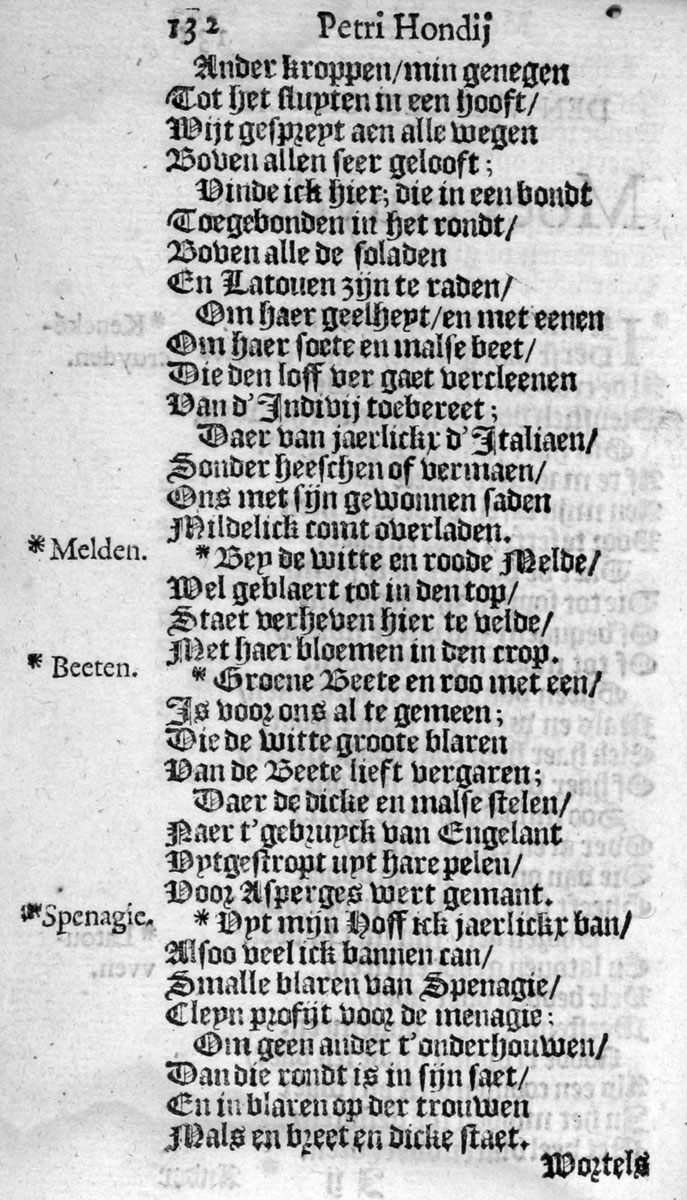 132 Petri Hondij
Ander kroppen/min genegen
Tot het sluyten in een hooft/
Wijt gespreyt aen alle wegen
Boven allen seer gelooft;
Vinde ick hier; die in een bondt
Toegebonden in het rondt/
Boven alle de soladen
En Latouen zijn te raden/
Om haer geelheyt/en met eenen
Om haer soete en malse beet/
Die den loff ver gaet vercleenen
Van d'Indivij toebereet;
Daer van jaerlickx d'Italiaen/
Sonder heeschen of vermaen/
Ons met sijn gewonnen saden
Mildelick comt overladen.
* Melden. *Bey de witte en roode Melde/
Wel geblaert tot in den top/
Staet verheven hier te velde/
Met haer bloemen in den crop.
* Beeten. *Groene Beete en roo met een/
Is voor ons al te gemeen;
Die de witte groote blaren
Van de Beete lieft vergaren;
Daer de dicke en malse stelen/
Naer t'gebruyck van Engelant
Uytgestropt uyt hare pelen/
Voor Asperges wert gemant.
*Spenagie. *Uyt mijn Hoff ick jaerlickx ban/
Alsoo veel ick bannen can/
Smalle blaren van Spenagie/
Cleyn profijt voor de menagie:
Om geen ander t'onderhouwen/
Dan die rondt is in sijn saet/
En in blaren op der trouwen
Mals en breet en dicke staet.
Wortels